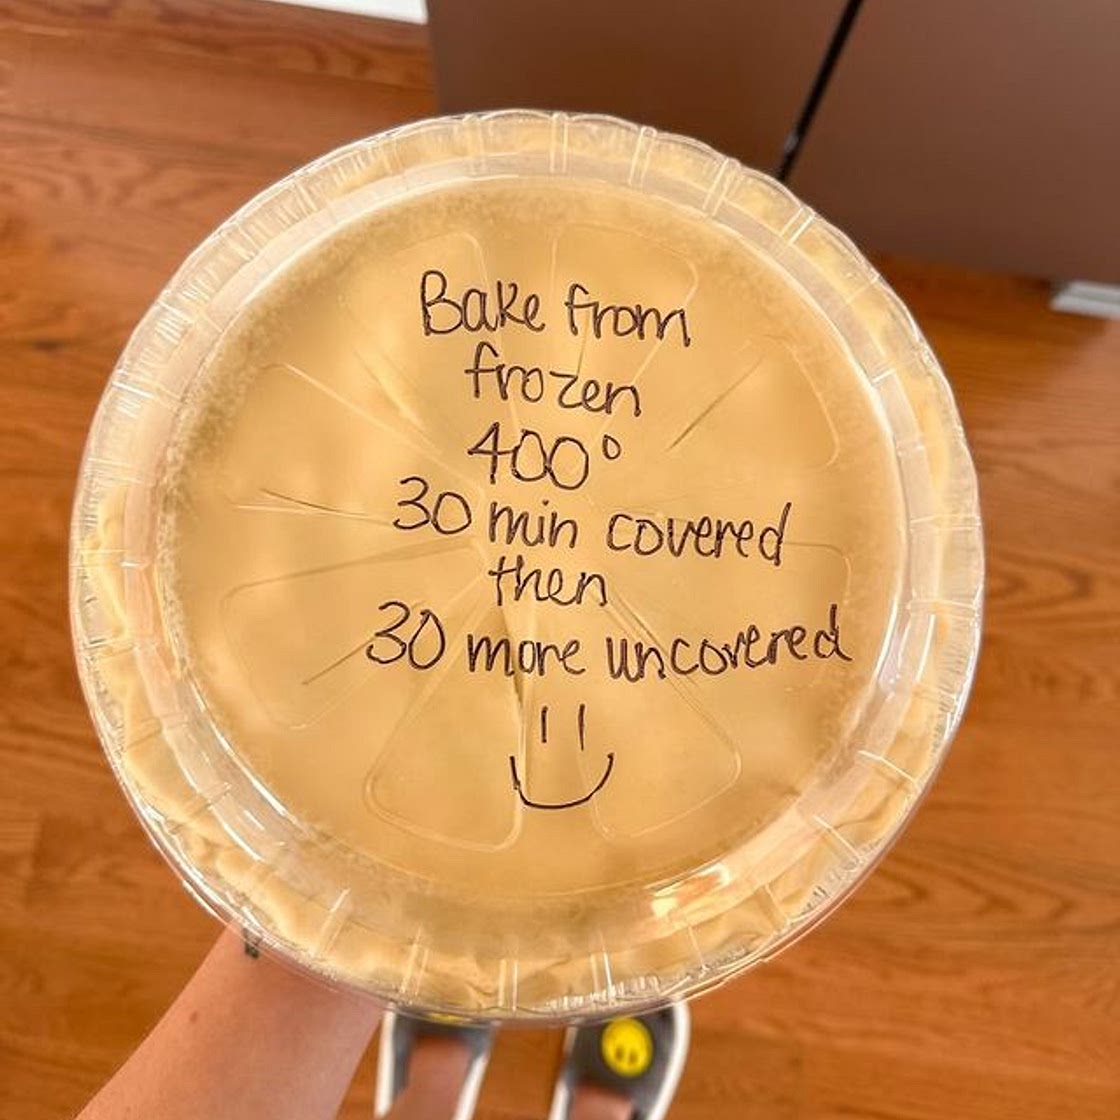 Bake from
frozen
400°
30 min covered
then
30 more uncovered